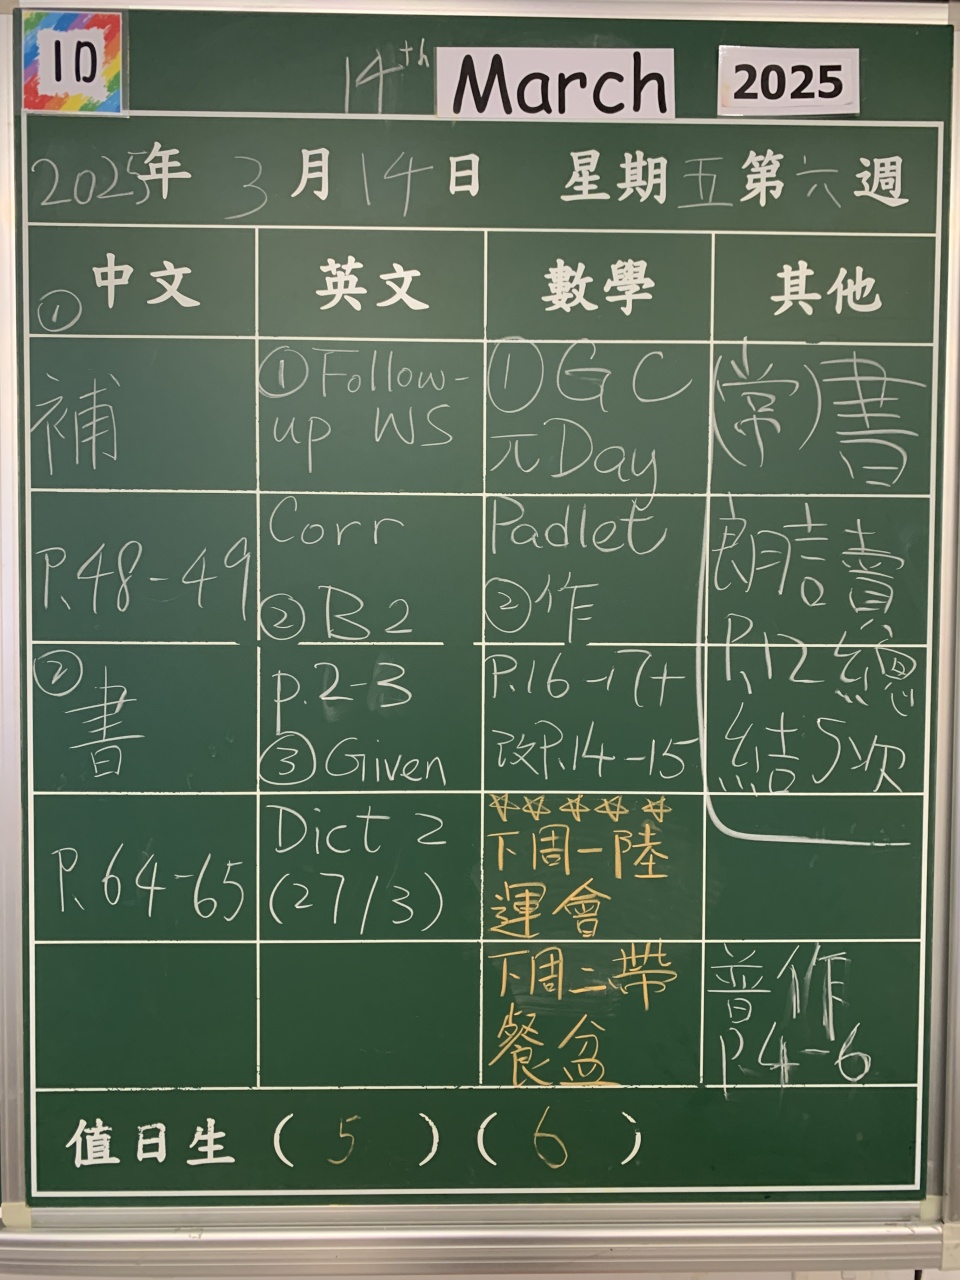 1D
14th March 2025
2025年 3月14日 星期五第六週
中文
①
補
P.48-49
②
書
P.64-65
英文
①Follow-
up WS
Corr
②B2
p.2-3
③Given
Dict 2
(27/3)
數學
①GC
πDay
Padlet
②作
P.16-17+
改P.14-15
☆☆☆☆☆
下周一陸
運會
下周二帶
餐盆
其他
(常)書
朗讀
P.12總
結5次
普作
P.4-6
值日生(5)(6)